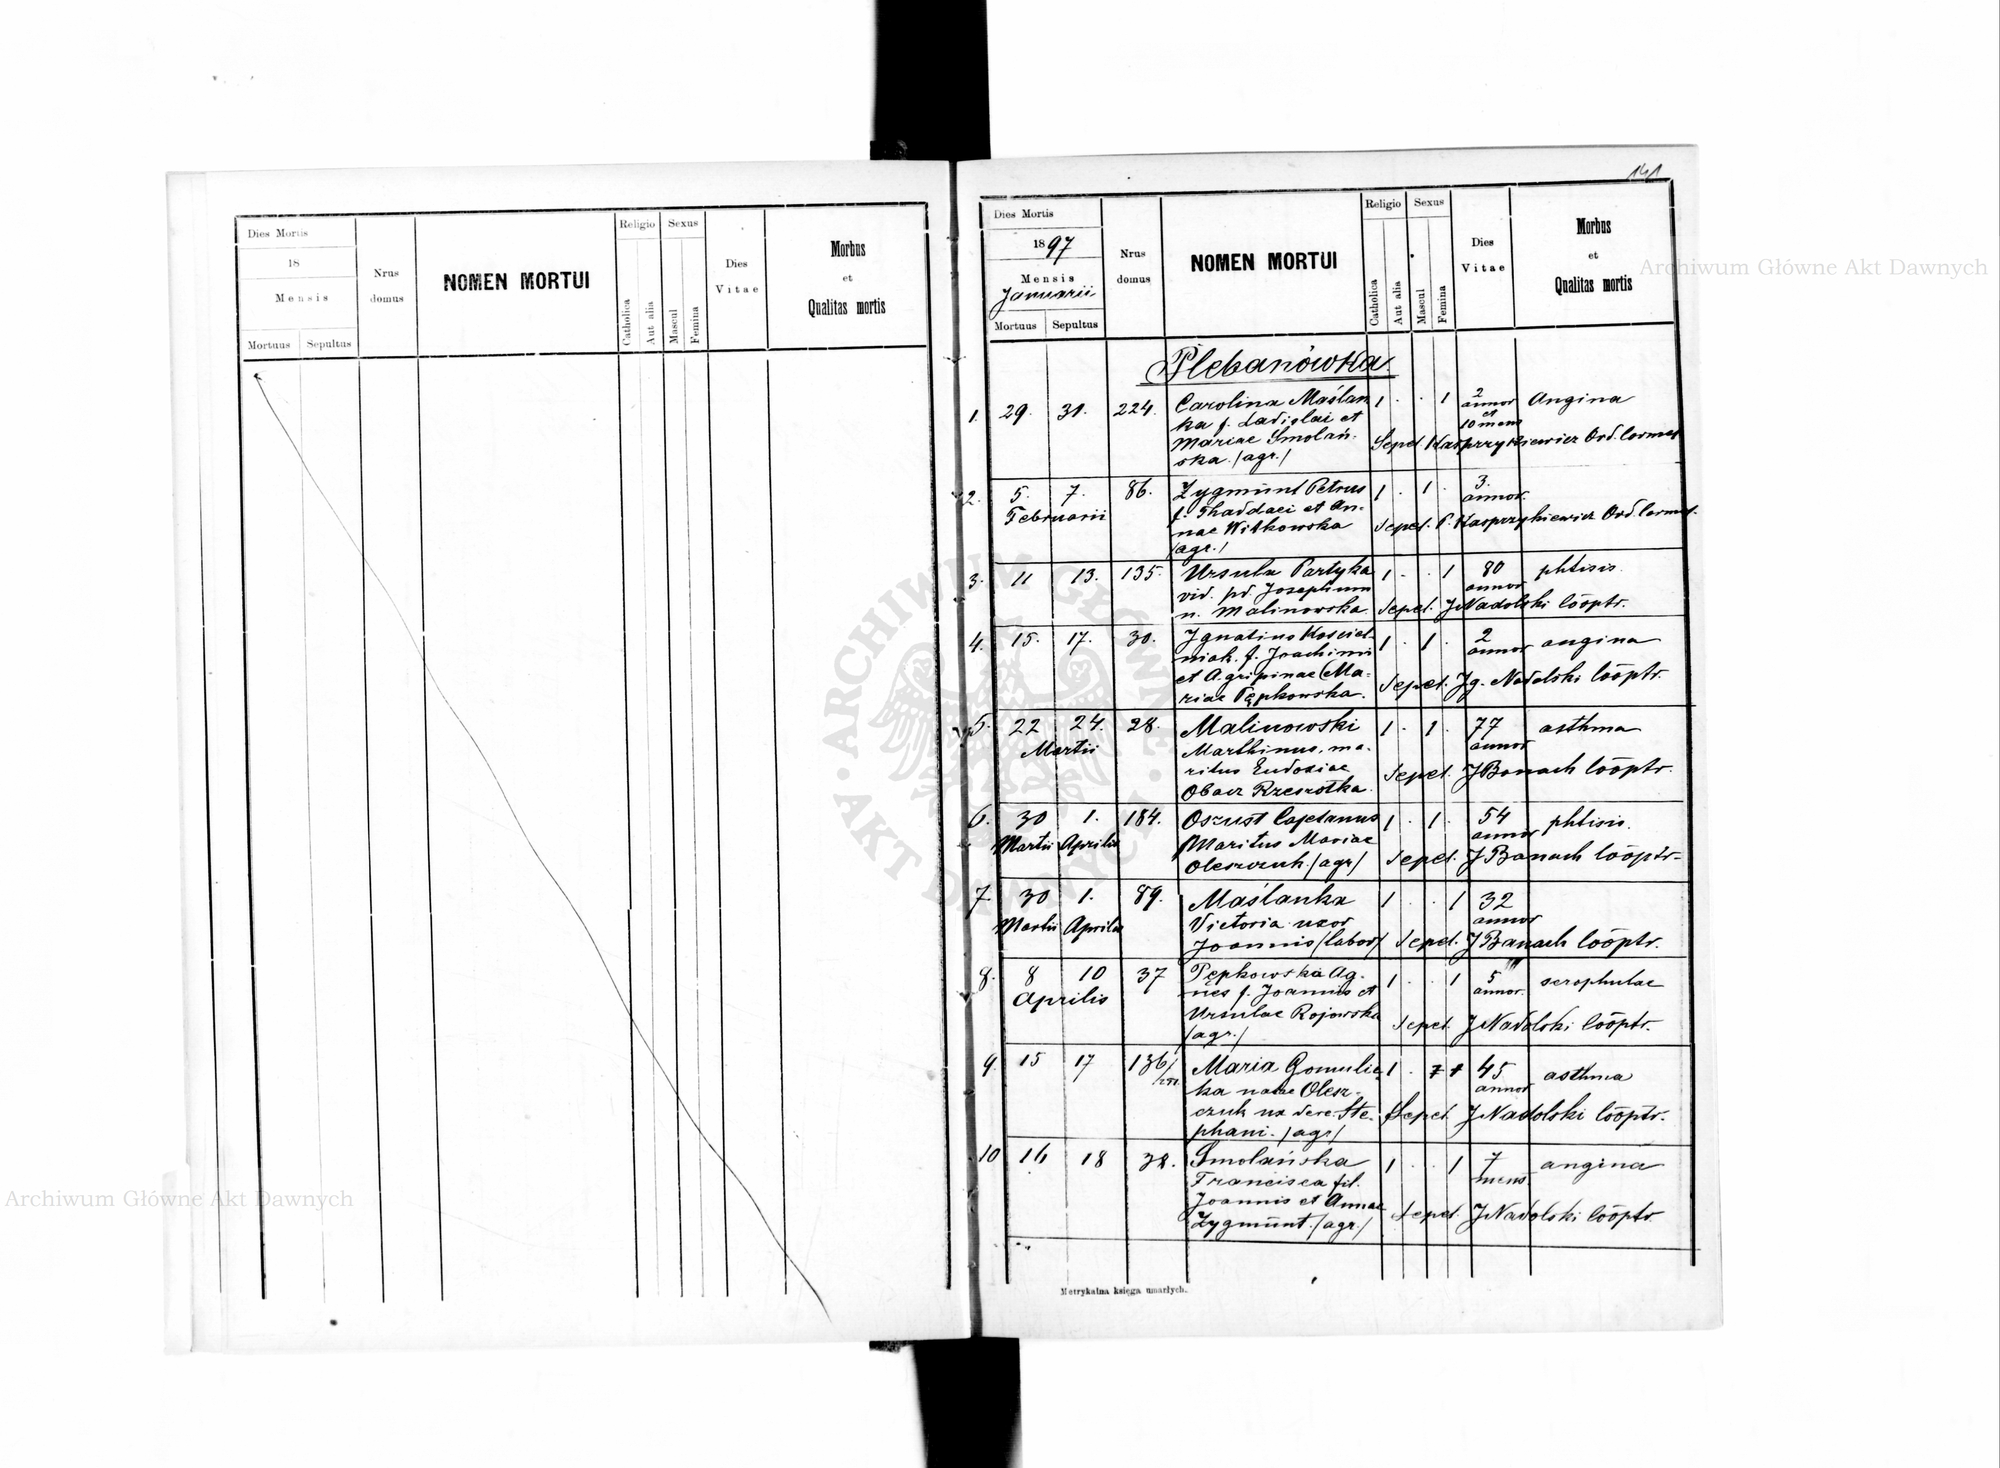 141
Dies Mortis
18
Mensis
Mortuus Sepultus
Nrus
domus
NOMEN MORTUI
Religio
Catholica
Aut alia
Sexus
Mascul
Femina
Dies
Vitae
Morbus
et
Qualitas mortis
Dies Mortis
1897
Mensis
Januarii
Mortuus Sepultus
Nrus
domus
NOMEN MORTUI
Religio
Catholica
Aut alia
Sexus
Mascul
Femina
Dies
Vitae
Morbus
et
Qualitas mortis
Plebanówka
1. 29. 31. 224. Carolina Maślan 1 . . 1 2 Angina
ka f. Ladislai et annor
et
Mariae Smolań- 10 mens
ska. /agr./ Sepel. Kasprzykiewicz Ord.
2. 5. 7. 86. Zygmunt Petrus 1 . 1 . 3.
Februarii f. Thaddaei et An- annor
nae Witkowska Sepel. P. Kasprzykiewicz Ord.
/agr./
3. 11 13. 135. Ursula Partyka 1 . . 1 80 phtisis.
vid. pd. Josephum annor
n. Malinowska. Sepel. J Nadolski Cooptr.
4. 15. 17. 30. Ignatius Kościel- 1 . 1 . 2 angina
niak. f. Joachimi annor
et Agripinae (Ma-
riae Pępkowska. Sepel. Ig. Nadolski Cooptr.
5. 22 24. 28. Malinowski 1 . 1 . 77 asthma
Martii Marthinus, ma- annor
ritus Eudosiae Sepel. J Banach Cooptr.
Obacz Rzeszotka.
6. 30 1. 184. Oszust Cajetanus 1 . 1 . 54 phtisis.
Martii Aprilis Maritus Mariae annor
Oleszczuk. /agr/ Sepel. J Banach Cooptr.
7. 30 1. 89. Maślanka 1 . . 1 32
Martii Aprilis Victoria uxor annor
Joannis /labor/ Sepel. J Banach Cooptr.
8. 8 10 37 Pępkowska Ag- 1 . . 1 5 scrophulae
Aprilis nes f. Joannis et annor.
Ursulae Rojowska Sepel. J Nadolski Cooptr.
/agr./
9. 15 17 136/ Maria Gomulic 1 . 1 45 asthma
ka natae Olesz- annor
czuk ux dere. Ste- Sepel J Nadolski Cooptr.
phani. /agr/
10 16 18 38. Smolańska 1 . . 1 7 angina
Francisca fil. mens.
Joannis et Annae Sepel. J Nadolski Cooptr.
Zygmunt. /agr./
Metrykalna księga umarłych.
Archiwum Główne Akt Dawnych
Archiwum Główne Akt Dawnych
ARCHIWUM GŁÓWNE
AKT DAWNYCH